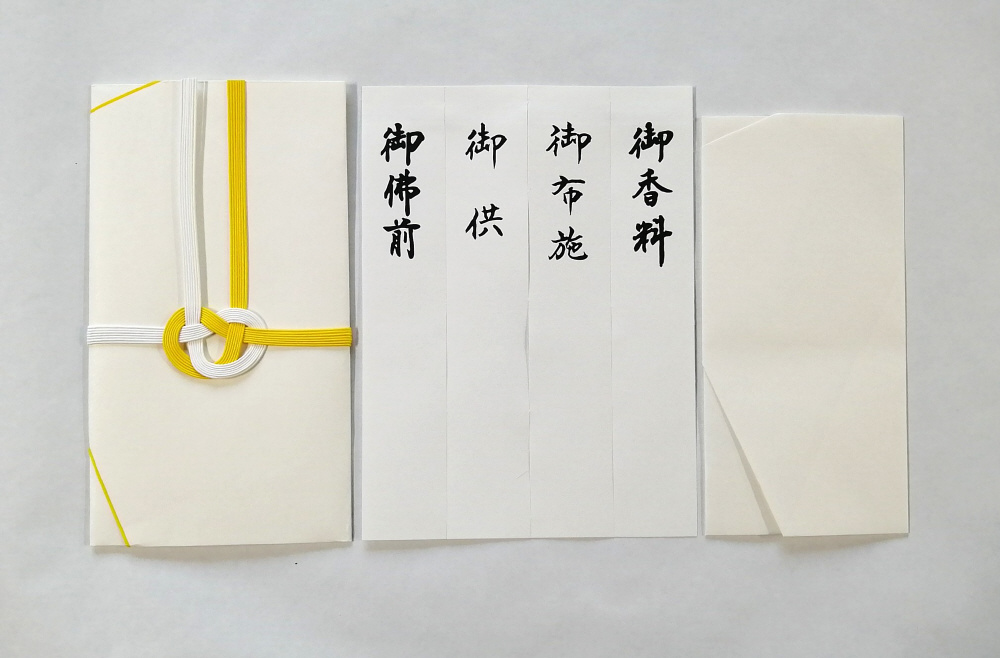 御香料
御布施
御供
御佛前